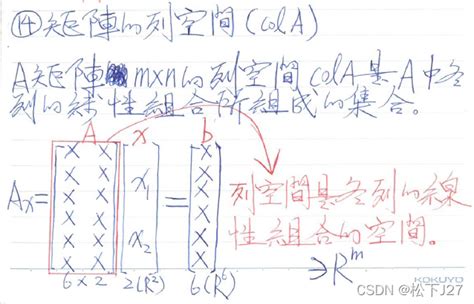 ⑭矩陣的列空間(colA)
A矩陣 m×n的列空間colA是A中各
列的線性組合所組成的集合。
A x b
Ax= [× × × × × × × × × × × ×] [x₁ x₂] = [× × × × × ×]
6×2 2(R²) 6(R⁶)
列空間是各列的線
性組合的空間。
→R^m
KOKUYO
CSDN @松下J27